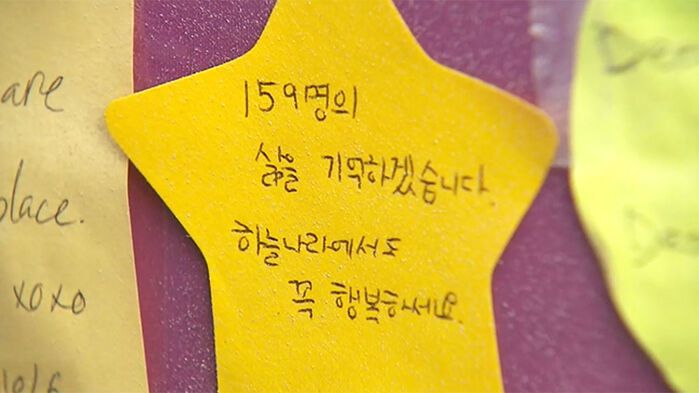 are
place.
xoxo
159명의
삶을 기억하겠습니다.
하늘나라에서도
꼭 행복하세요.